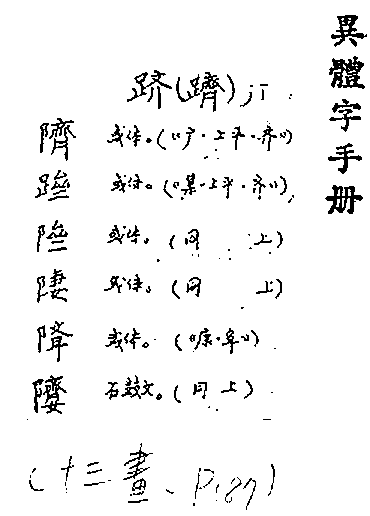 異體字手册
跻(躋)jī
隮 或体。(《广·上平·齐》)
或体。(《集·上平·齐》)
或体。(同 上)
或体。(同 上)
或体。(《康·阜》)
石鼓文。(同 上)
(十三畫、P187)